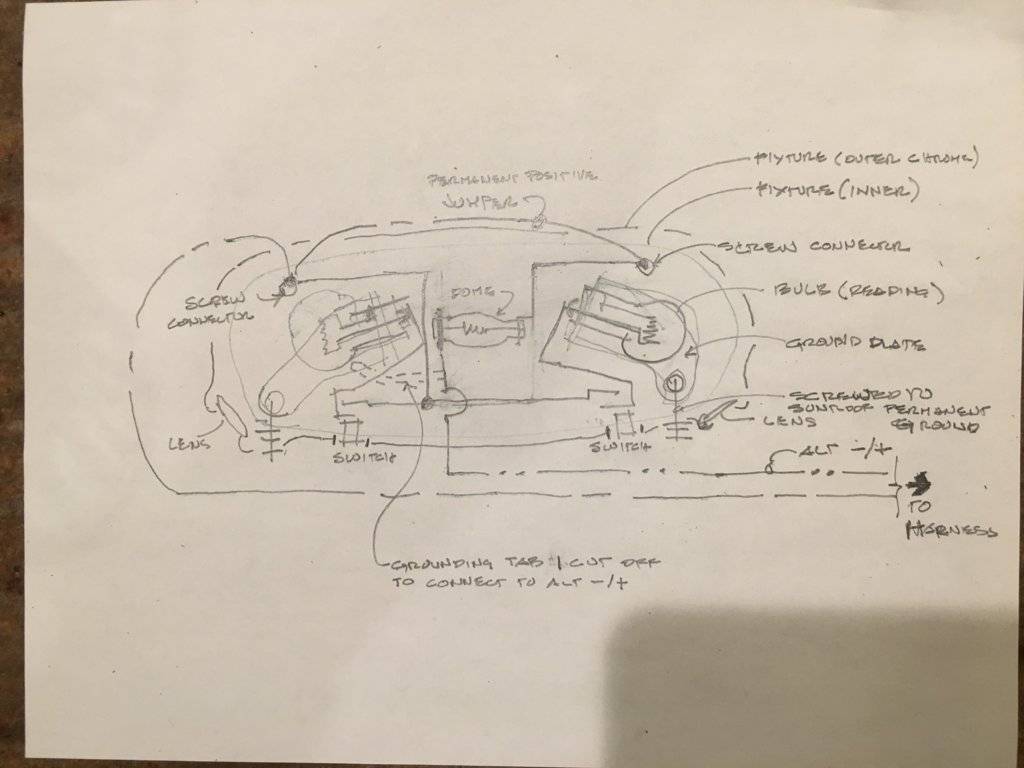 FIXTURE (OUTER CHROME)
FIXTURE (INNER)
PERMANENT POSITIVE
JUMPER
SCREW CONNECTOR
SCREW
CONNECTOR
DOME
BULB (READING)
GROUND PLATE
SCREWED TO
SUNROOF PERMANENT
GROUND
LENS
LENS
SWITCH
SWITCH
ALT -/+
TO
HARNESS
GROUNDING TAB I CUT OFF
TO CONNECT TO ALT -/+